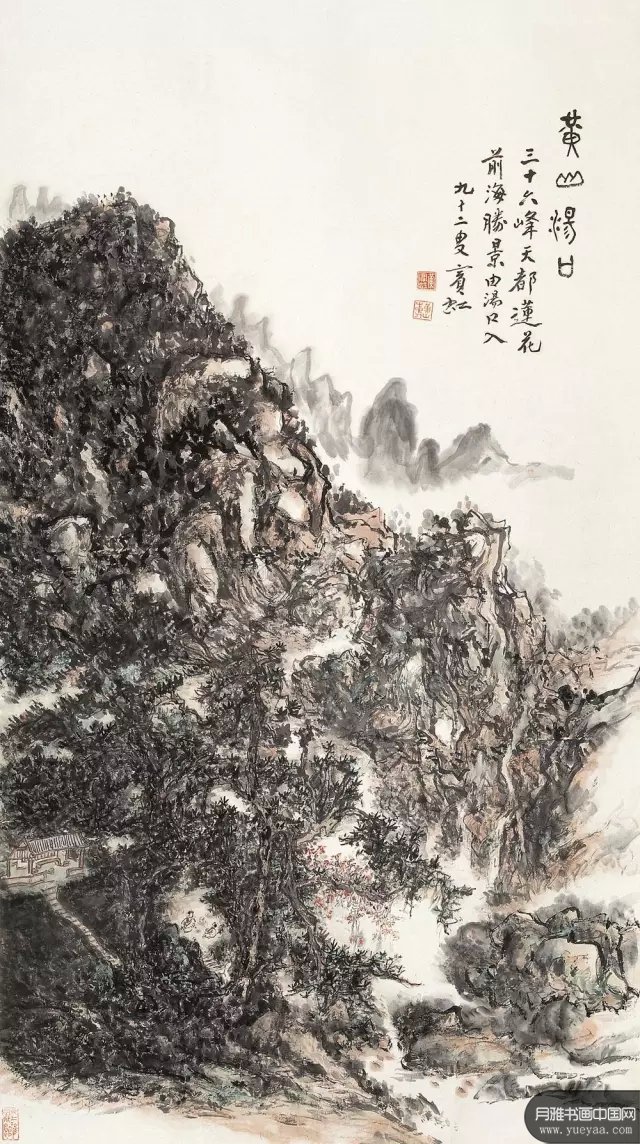 黄山湯口
三十六峰天都蓮花
前海勝景由湯口入
九十二叟賓虹
月雅书画中国网
www.yueyaa.com